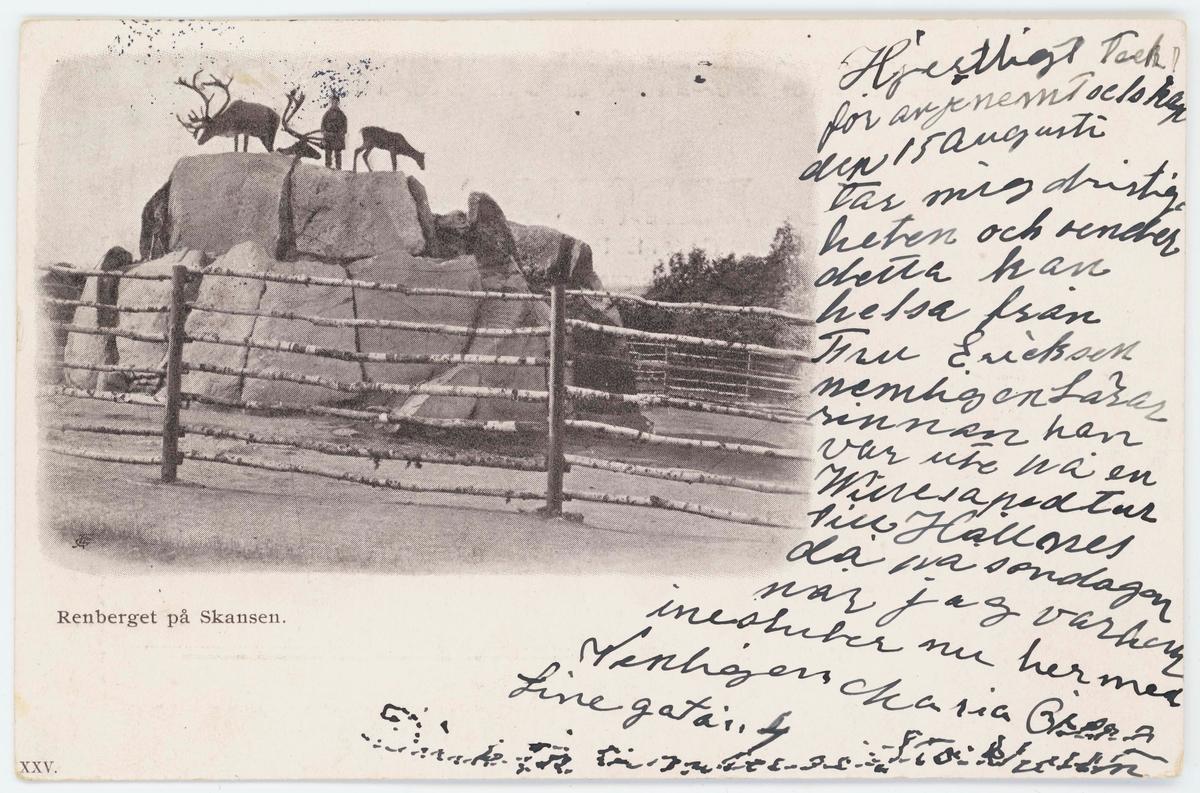 Hjertligt Tack!
för angenemt
den 15 Augusti
Tar mig dristig
heten och sender
detta kan
helsa från
Fru Ericksen
nemligen Lärar
rinnan hon
var ute på en
till Hallnes
då på sondagen
när jag var
inesluter nu hermed
Venligen Maria
Linegatan 4
Renberget på Skansen.
XXV.